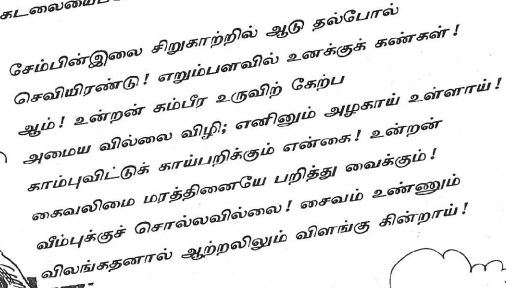 கடலையை
சேம்பின்இலை சிறுகாற்றில் ஆடு தல்போல்
செவியிரண்டு! எறும்பளவில் உனக்குக் கண்கள்!
ஆம்! உன்றன் கம்பீர உருவிற் கேற்ப
அமைய வில்லை விழி; எனினும் அழகாய் உள்ளாய்!
காம்புவிட்டுக் காய்பறிக்கும் என்கை! உன்றன்
கைவலிமை மரத்தினையே பறித்து வைக்கும்!
வீம்புக்குச் சொல்லவில்லை! சைவம் உண்ணும்
விலங்கதனால் ஆற்றலிலும் விளங்கு கின்றாய்!